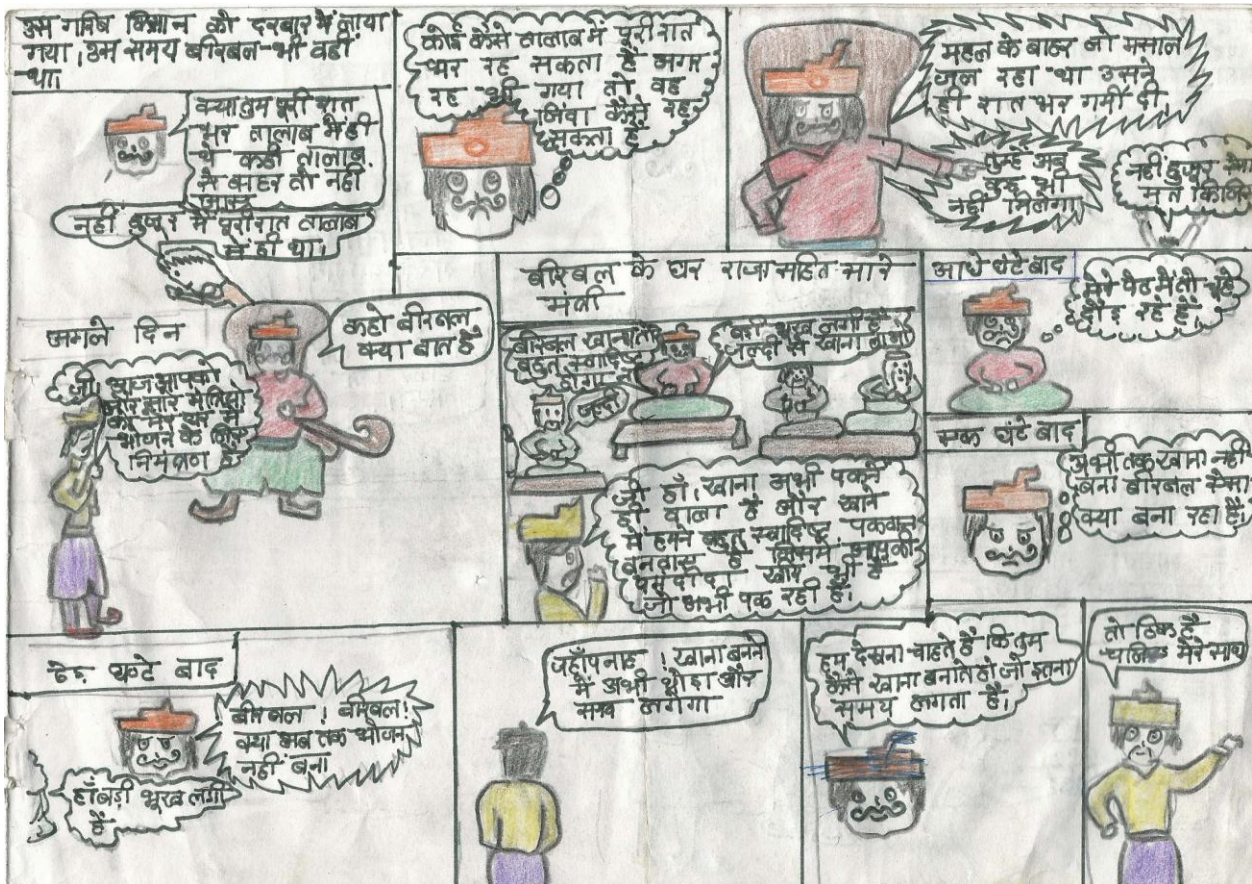 उस गरिब किसान को दरबार में लाया
गया। उस समय बीरबल भी वहीं
था
क्या तुम पूरी रात
भर तालाब में ही
थे कहीं तालाब
से बाहर तो नहीं
आए
नहीं हुजूर में पूरी रात तालाब
में ही था।
कोई कैसे तालाब में पूरी रात
भर रह सकता है अगर
रह भी गया तो वह
जिंदा कैसे रह
सकता है
महल के बाहर जो मसाल
जल रहा था उसने
ही रात भर गर्मी दी
तुम्हें अब
कुछ भी
नहीं मिलेगा
नहीं हुजूर ऐसा
मत किजिए
अगले दिन
कहो बीरबल
क्या बात है
जी आज आपको
और सारे मंत्रियों
को मेरे घर में
भोजन के लिए
निमंत्रण है
बीरबल के घर राजा सहित सारे
मंत्री
बीरबल खाना तो
बहुत स्वादिष्ट
होगा
बड़ी भूख लगी है
जल्दी से खाना लाओ
जल्दी
जी हाँ, खाना अभी पकने
ही वाला है और खाने
में हमने बहुत स्वादिष्ट पकवान
बनवाए है जिसमें आपकी
पसंदीदा खीर भी है
जो अभी पक रही है।
आधे घंटे बाद
मेरे पेट में तो चूहे
दौड़ रहे हैं
एक घंटे बाद
अभी तक खाना नहीं
बना बीरबल ऐसा
क्या बना रहा है।
डेढ़ घण्टे बाद
बीरबल! बीरबल!
क्या अब तक भोजन
नहीं बना
हाँ बड़ी भूख लगी
है
जहाँपनाह! खाना बनने
में अभी थोड़ा और
समय लगेगा
हम देखना चाहते हैं कि तुम
कैसे खाना बनाते हो जो इतना
समय लगता है।
तो ठिक है
चलिए मेरे साथ